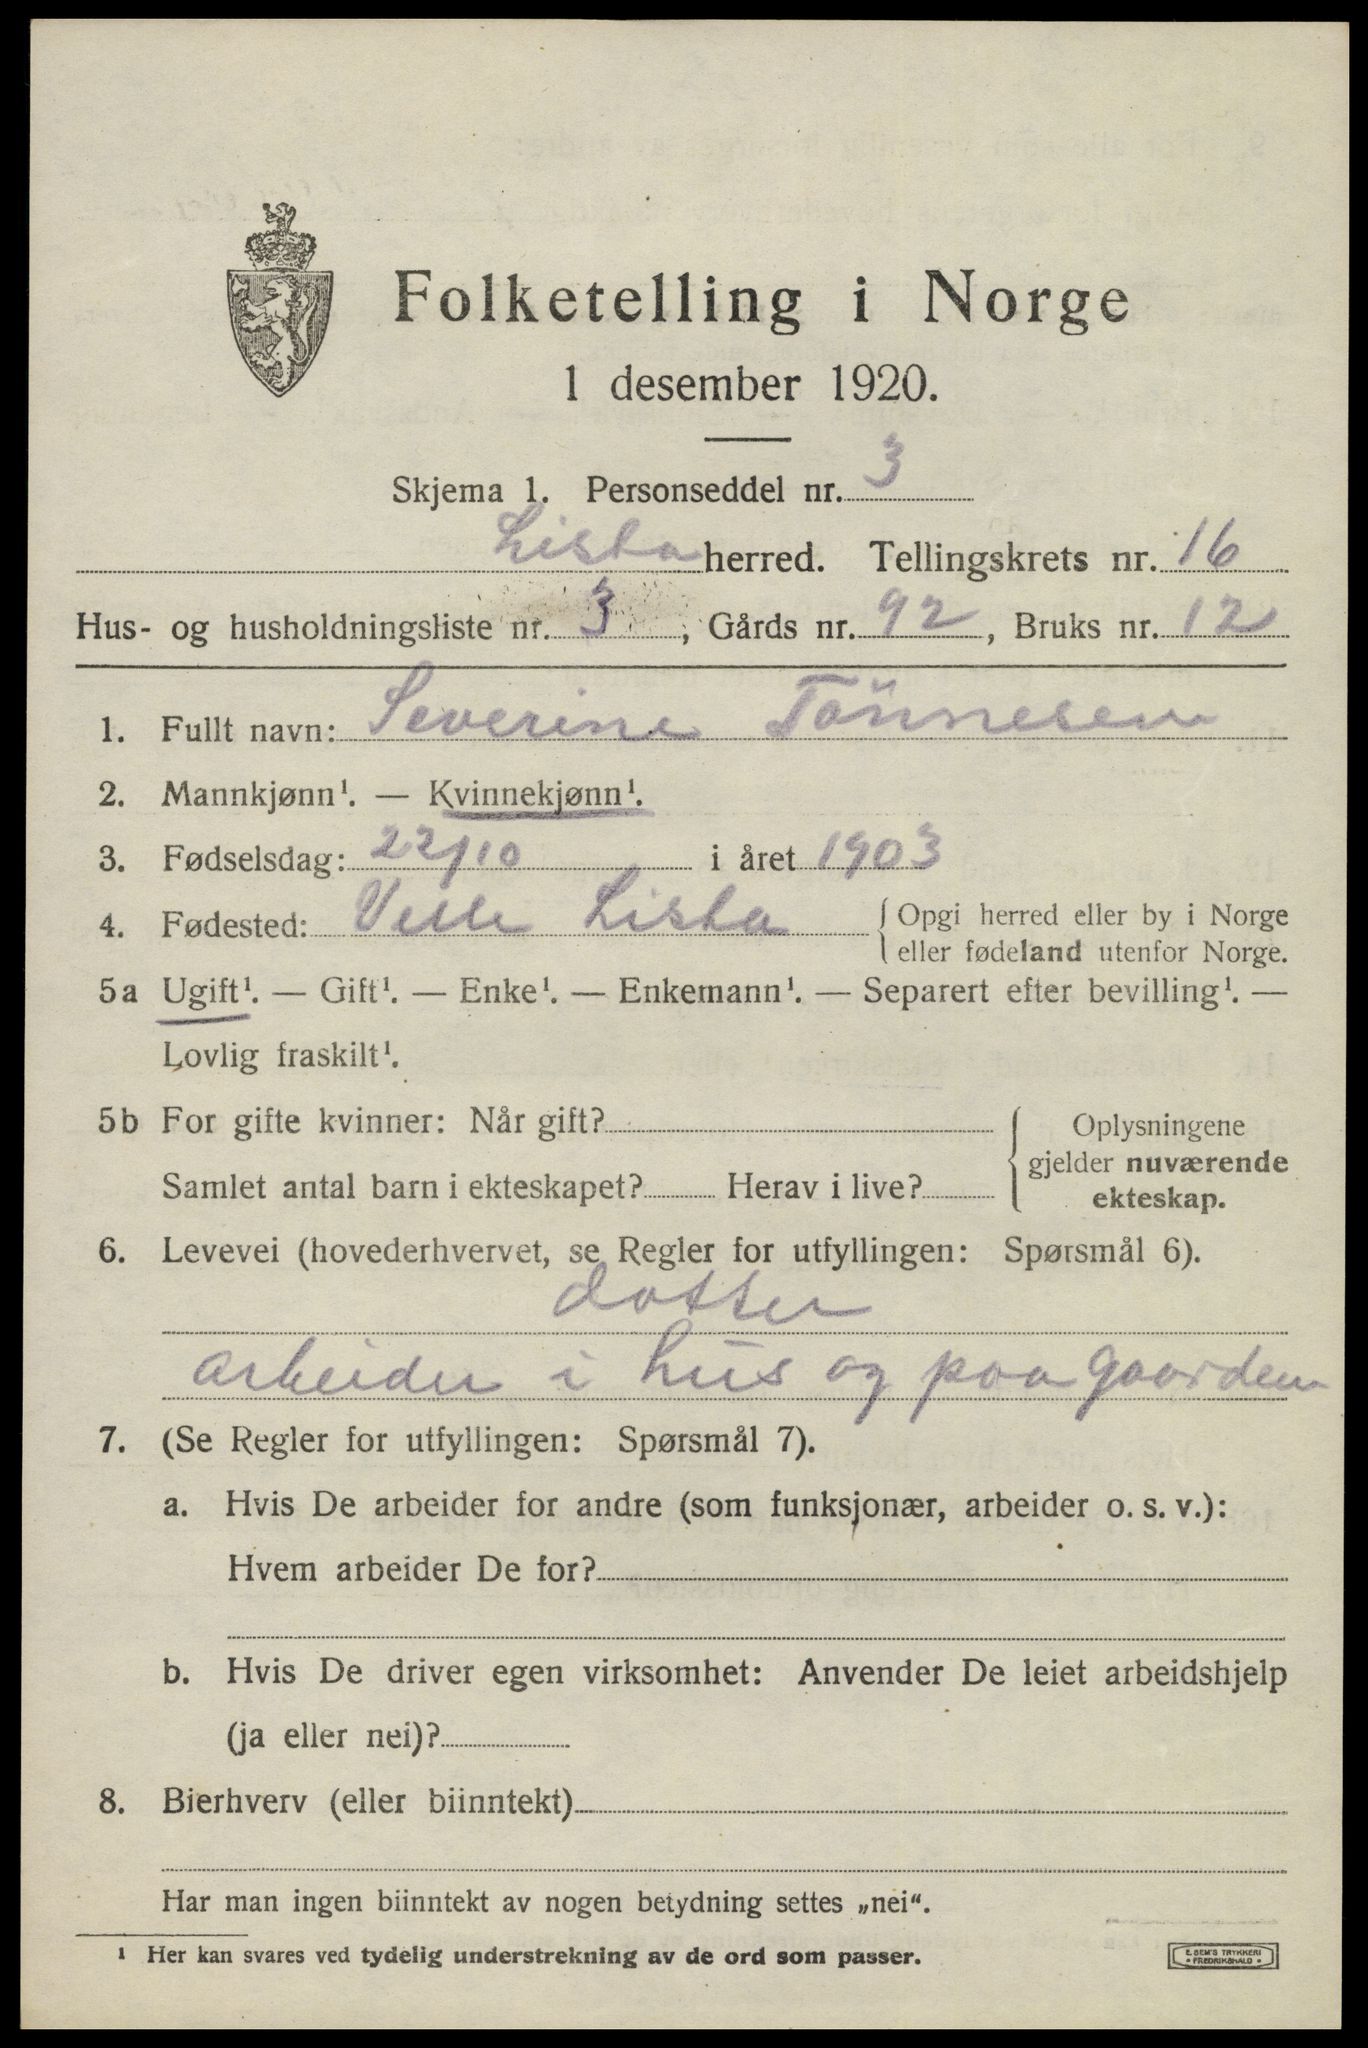 Folketelling i Norge
1 desember 1920.
Skjema 1. Personseddel nr. 3
Lista herred. Tellingskrets nr. 16
Hus- og husholdningsliste nr. 3, Gårds nr. 92, Bruks nr. 12
1. Fullt navn: Severine Tönnesen
2. Mannkjønn¹. — Kvinnekjønn¹.
3. Fødselsdag: 22/10 i året 1903
4. Fødested: Vesle Lista {Opgi herred eller by i Norge
eller fødeland utenfor Norge.
5a Ugift¹. — Gift¹. — Enke¹. — Enkemann¹. — Separert efter bevilling¹. —
Lovlig fraskilt¹.
5b For gifte kvinner: Når gift? { Oplysningene
gjelder nuværende
Samlet antal barn i ekteskapet? Herav i live? ekteskap.
6. Levevei (hovederhvervet, se Regler for utfyllingen: Spørsmål 6).
dotter
arbeider i hus og paa gaarden
7. (Se Regler for utfyllingen: Spørsmål 7).
a. Hvis De arbeider for andre (som funksjonær, arbeider o. s. v.):
Hvem arbeider De for?
b. Hvis De driver egen virksomhet: Anvender De leiet arbeidshjelp
(ja eller nei)?
8. Bierhverv (eller biinntekt)
Har man ingen biinntekt av nogen betydning settes „nei“.
¹ Her kan svares ved tydelig understrekning av de ord som passer.
E. SEM'S TRYKKERI
FREDRIKSHALD